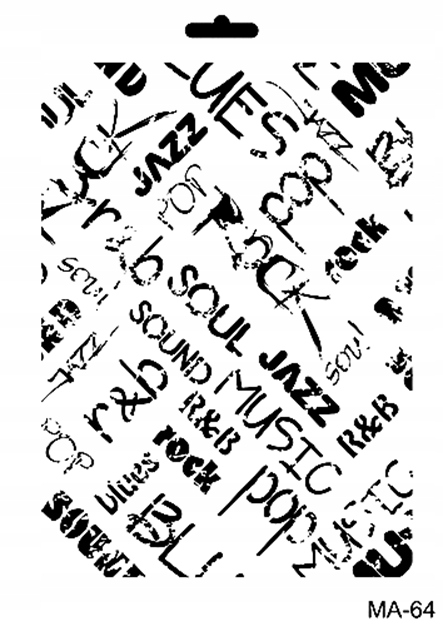 UES
ROCK
JAZZ
JAZZ
pop
pop
ROCK
rock
r&b
soul
SOUL
SOUND
JAZZ
soul
JAZZ
r&b
MUSIC
R&B
R&B
pop
rock
blues
pop
MUSIC
SOUND
MA-64